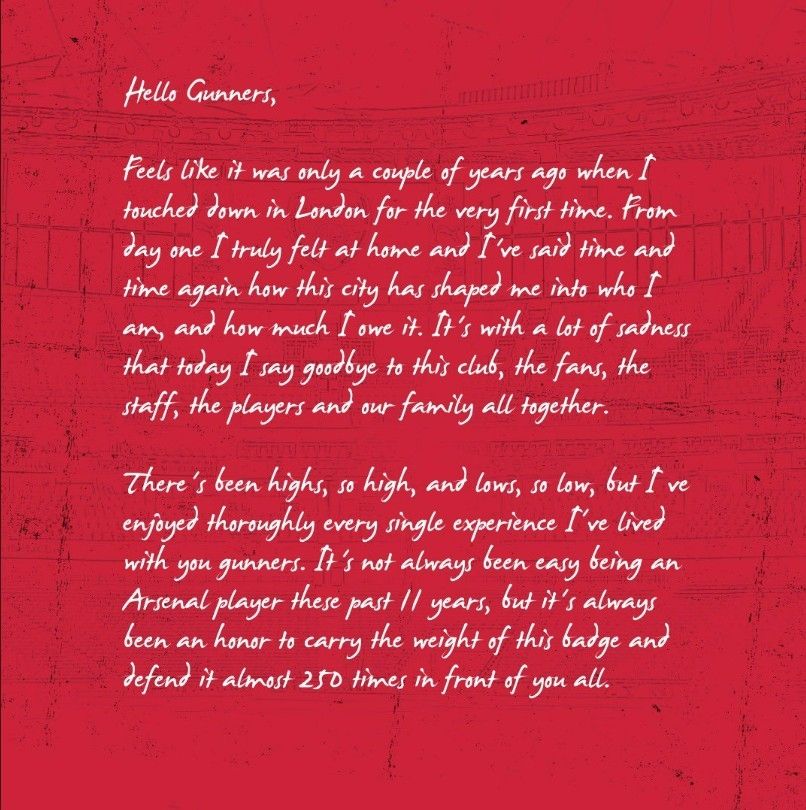 Hello Gunners,
Feels like it was only a couple of years ago when I
touched down in London for the very first time. From
day one I truly felt at home and I've said time and
time again how this city has shaped me into who I
am, and how much I owe it. It's with a lot of sadness
that today I say goodbye to this club, the fans, the
staff, the players and our family all together.
There's been highs, so high, and lows, so low, but I've
enjoyed thoroughly every single experience I've lived
with you gunners. It's not always been easy being an
Arsenal player these past 11 years, but it's always
been an honor to carry the weight of this badge and
defend it almost 250 times in front of you all.